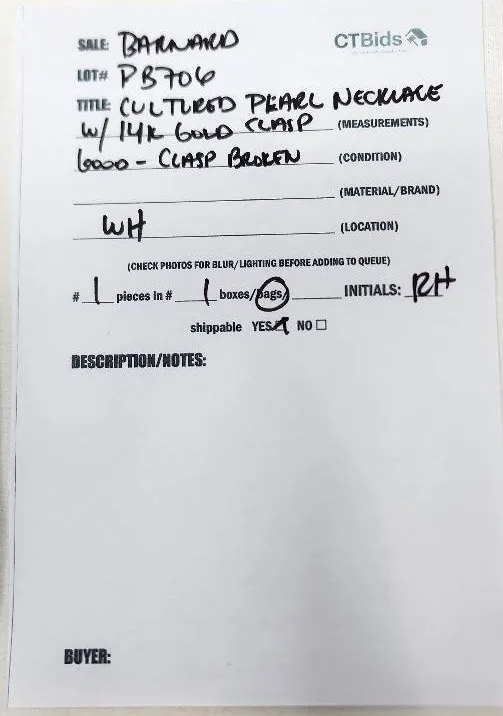 SALE: BARNARD
CTBids
LOT# PB706
TITLE: CULTURED PEARL NECKLACE
W/ 14K GOLD CLASP (MEASUREMENTS)
GOOD - CLASP BROKEN (CONDITION)
(MATERIAL/BRAND)
WH (LOCATION)
(CHECK PHOTOS FOR BLUR/LIGHTING BEFORE ADDING TO QUEUE)
# 1 pieces in # 1 boxes/bags/ INITIALS: RH
shippable YES NO
DESCRIPTION/NOTES:
BUYER: